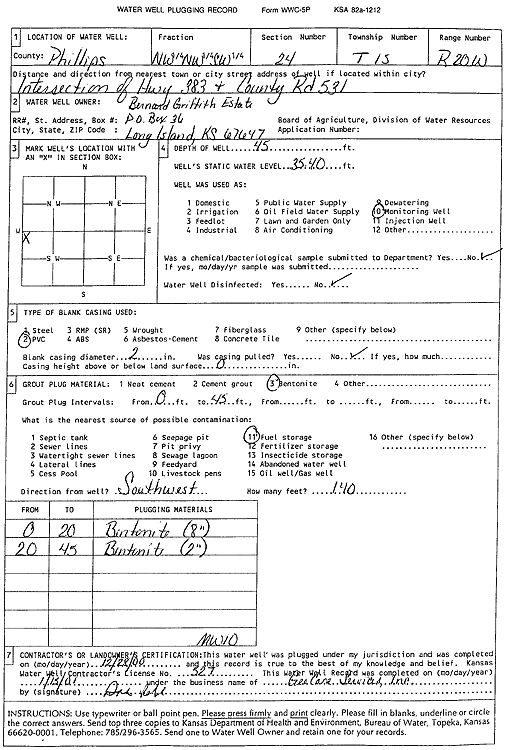 WATER WELL PLUGGING RECORD Form WWC-5P KSA 82a-1212
1 LOCATION OF WATER WELL: Fraction Section Number Township Number Range Number
County: Phillips NW 1/4 NW 1/4 SW 1/4 24 T 1 S R 20 W
Distance and direction from nearest town or city street address of well if located within city?
Intersection of Hwy 383 + County Rd 531
2 WATER WELL OWNER: Bernard Griffith Estate
RR#, St. Address, Box #: P.O. Box 36 Board of Agriculture, Division of Water Resources
City, State, ZIP Code : Long Island, KS 67647 Application Number:
3 MARK WELL'S LOCATION WITH AN "X" IN SECTION BOX:
N
N W N E
W X E
S W S E
S
4 DEPTH OF WELL....45....ft.
WELL'S STATIC WATER LEVEL..35.40...ft.
WELL WAS USED AS:
1 Domestic 5 Public Water Supply 9 Dewatering
2 Irrigation 6 Oil Field Water Supply 10 Monitoring Well
3 Feedlot 7 Lawn and Garden Only 11 Injection Well
4 Industrial 8 Air Conditioning 12 Other
Was a chemical/bacteriological sample submitted to Department? Yes....No.✓
If yes, mo/day/yr sample was submitted
Water Well Disinfected: Yes..... No.✓
5 TYPE OF BLANK CASING USED:
1 Steel 3 RMP (SR) 5 Wrought 7 Fiberglass 9 Other (specify below)
2 PVC 4 ABS 6 Asbestos-Cement 8 Concrete Tile
Blank casing diameter..2...in. Was casing pulled? Yes..... No..✓ If yes, how much
Casing height above or below land surface..0...in.
6 GROUT PLUG MATERIAL: 1 Neat cement 2 Cement grout 3 Bentonite 4 Other
Grout Plug Intervals: From.0..ft. to.45.ft., From.....ft. to .....ft., From..... to.....ft.
What is the nearest source of possible contamination:
1 Septic tank 6 Seepage pit 11 Fuel storage 16 Other (specify below)
2 Sewer lines 7 Pit privy 12 Fertilizer storage
3 Watertight sewer lines 8 Sewage lagoon 13 Insecticide storage
4 Lateral lines 9 Feedyard 14 Abandoned water well
5 Cess Pool 10 Livestock pens 15 Oil well/Gas well
Direction from well? Southwest How many feet? 140
FROM TO PLUGGING MATERIALS
0 20 Bentonite (8")
20 45 Bentonite (2")
MW10
7 CONTRACTOR'S OR LANDOWNER'S CERTIFICATION: This water well was plugged under my jurisdiction and was completed
on (mo/day/year)..12/28/00.... and this record is true to the best of my knowledge and belief. Kansas
Water Well Contractor's License No. 527 This Water Well Record was completed on (mo/day/year)
1/15/01 under the business name of GeoCore Services, Inc.
by (signature)
INSTRUCTIONS: Use typewriter or ball point pen. Please press firmly and print clearly. Please fill in blanks, underline or circle
the correct answers. Send top three copies to Kansas Department of Health and Environment, Bureau of Water, Topeka, Kansas
66620-0001. Telephone: 785/296-3565. Send one to Water Well Owner and retain one for your records.